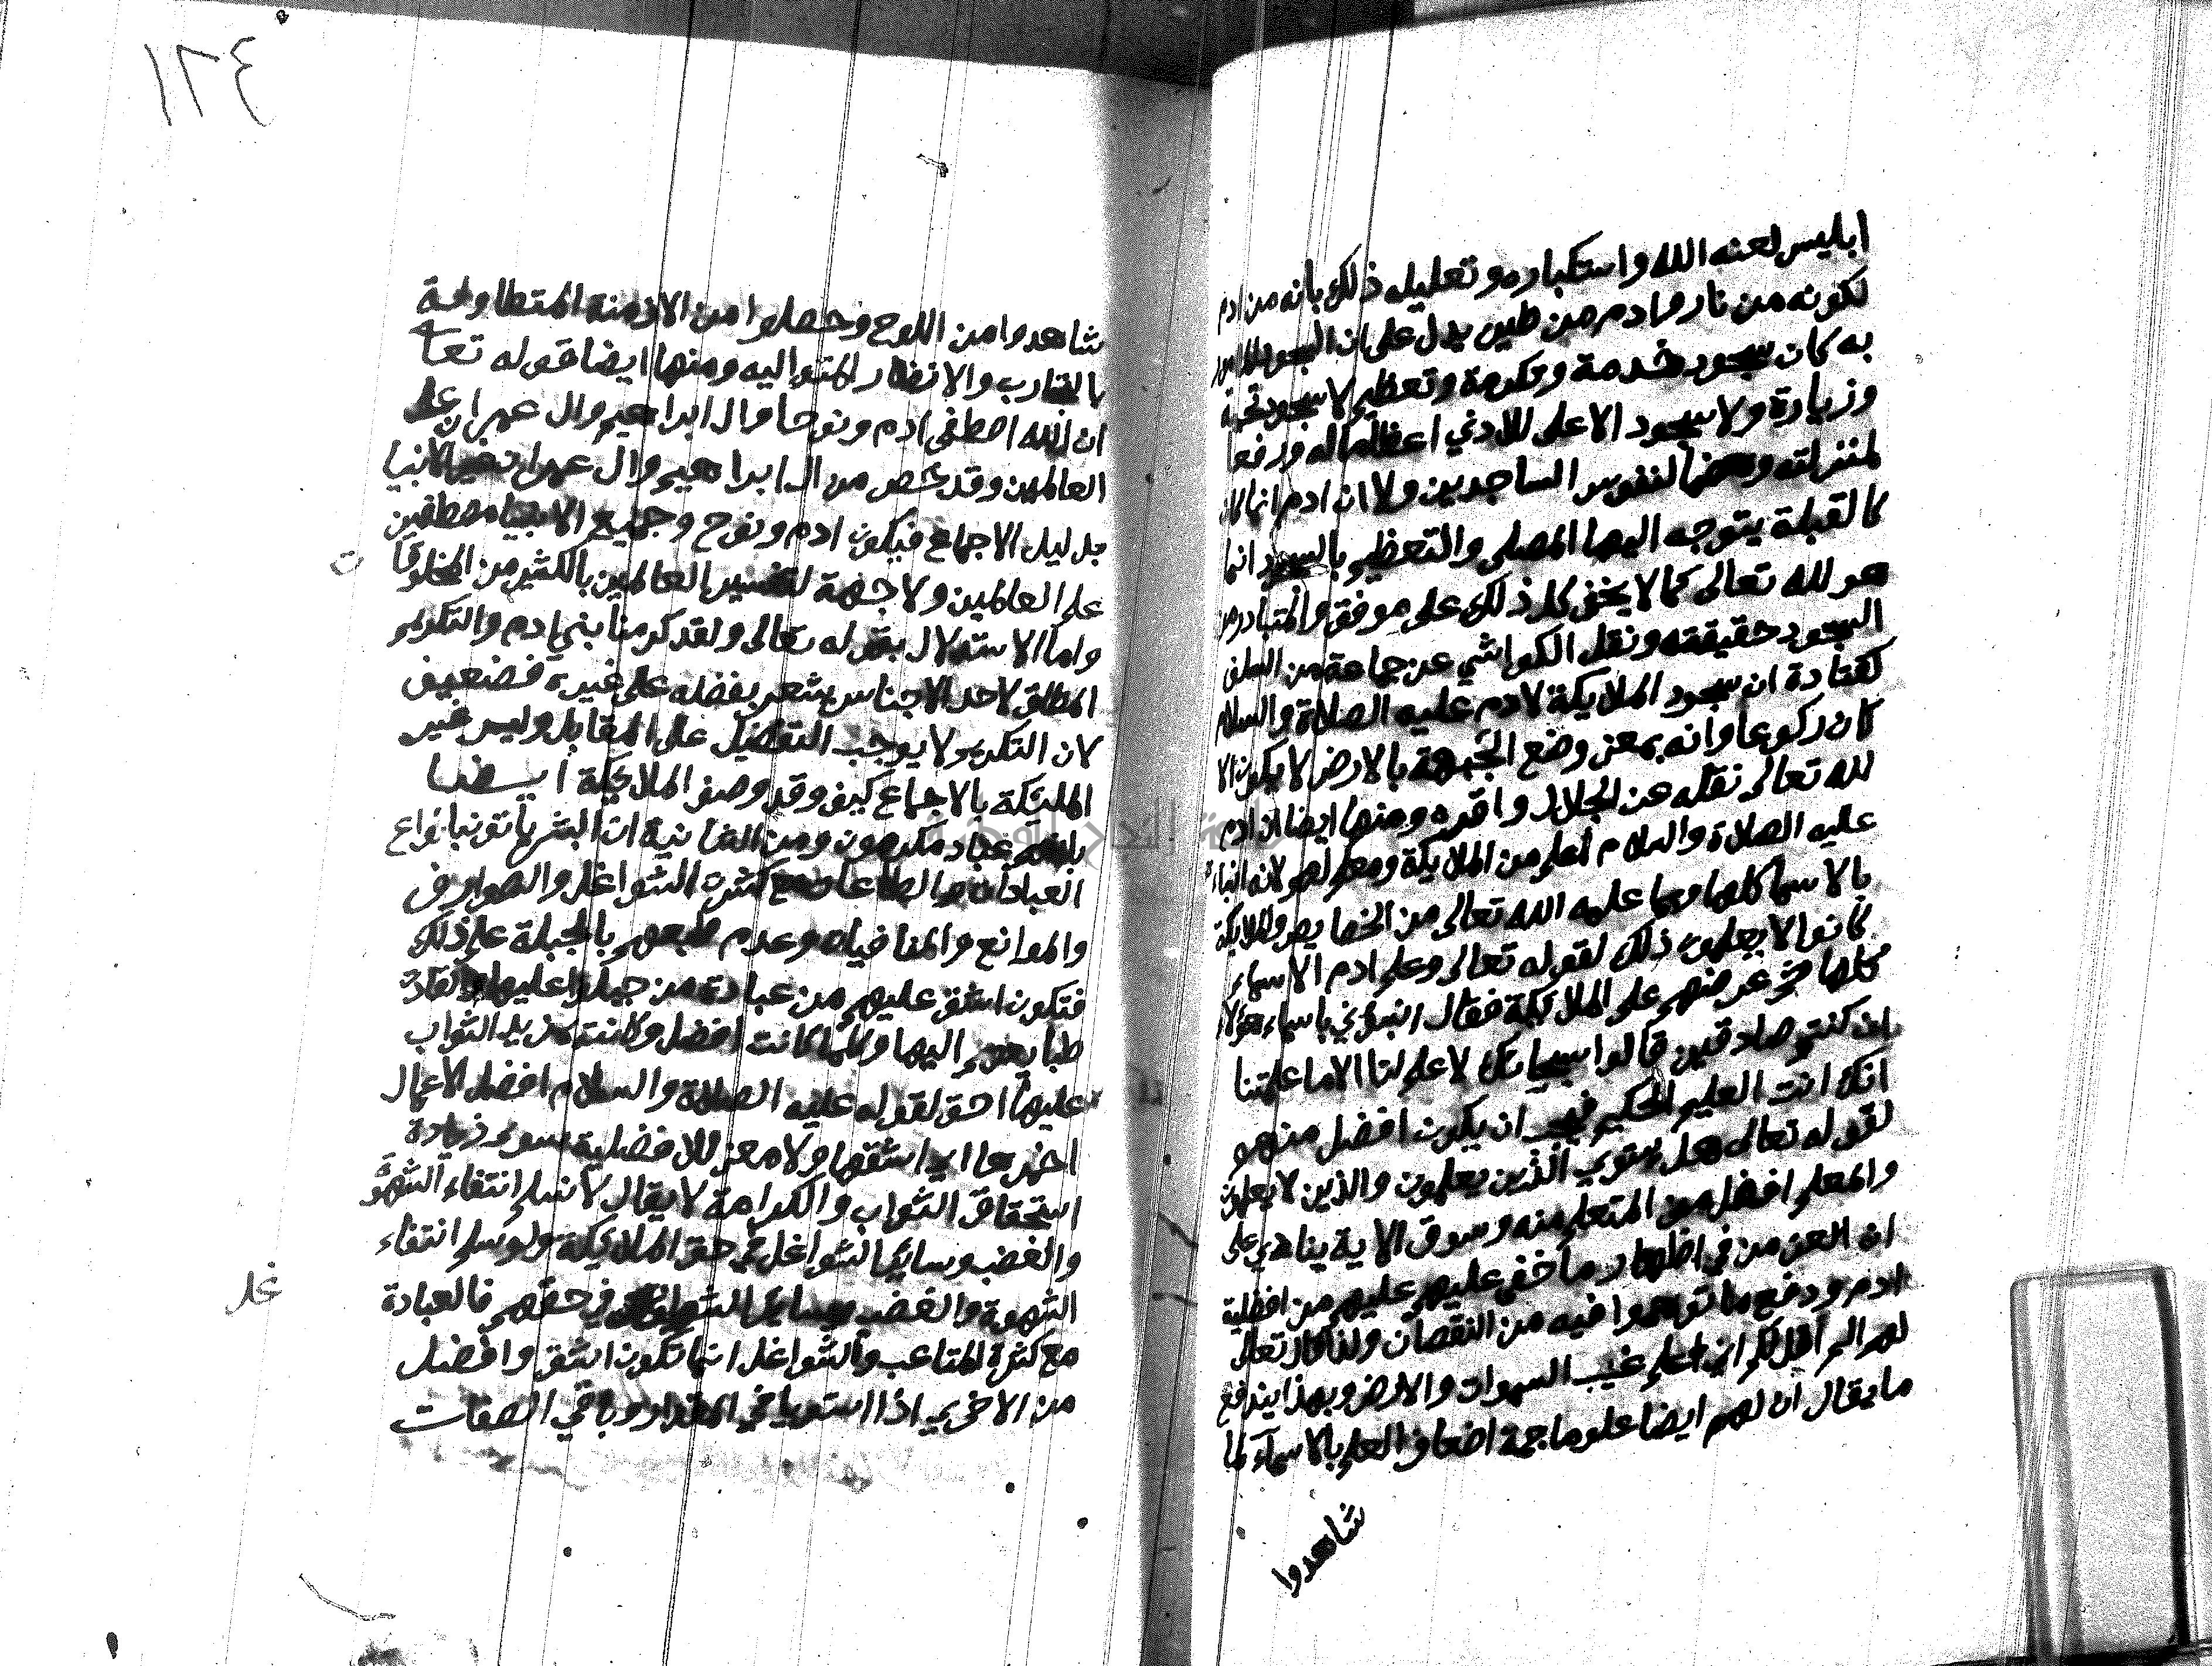 ابليس لعنه الله واستكباره وتعليله ذلك بانه من ادم
لكونه من نار وادم من طين يدل على ان السجود المامور
به كان سجود خدمة وتكرمة وتعظيم لا سجود تحية
وزيارة ولا سجود الاعلى للادني اعظاما له ورفعا
لمنزلته وهضما لنفوس الساجدين ولا ان ادم انما كان
كالقبلة يتوجه اليها المصلى والتعظيم بالسجود انما
هو لله تعالى كما لا يخفى كل ذلك على موفق والمتبادر من
السجود حقيقته ونقل الكواشي عن جماعة من السلف
كقتادة ان سجود الملايكة لادم عليه الصلاة والسلام
كان ركوعا وانه بمعنى وضع الجبهة بالارض لا يكون الا
لله تعالى نقله عن الجلال واقره ومنها ايضا ان ادم
عليه الصلاة والسلام اعلم من الملايكة ومعلم لهم لانه انباهم
بالاسما كلها وبما علمه الله تعالى من الخصايص والملايكة
كانوا لا يعلمون ذلك لقوله تعالى وعلم ادم الاسماء
كلها ثم عرضهم على الملائكة فقال انبؤني باسماء هؤلاء
ان كنتم صادقين قالوا سبحانك لا علم لنا الا ما علمتنا
انك انت العليم الحكيم فيجب ان يكون افضل منهم
لقوله تعالى هل يستوي الذين يعلمون والذين لا يعلمون
والمعلم افضل من المتعلم منه وسوق الاية يناهي على
ان الغرض في اظهار ما خفى عليهم عليهم من افضلية
ادم ودفع ما توهموا فيه من النقصان ولذا قال تعالى
لهم الم اقل لكم اني اعلم غيب السموات والارض وبهذا يندفع
ما يقال ان لهم ايضا علوما جمة اضعاف العلم بالاسماء لما
شاهدوا
٣٦١
شاهدوا من اللوح وحصلوا من الازمنة المتطاولة
بالتجارب والانظار المتواليه ومنها ايضا قوله تعا
ان الله اصطفى ادم ونوحا وال ابراهيم وال عمران على
العالمين وقد خص من ال ابراهيم وال عمران غير الانبيا
بدليل الاجماع فيكون ادم ونوح وجميع الانبيا مصطفين
على العالمين ولا جهة لتفسير العالمين بالكثير من المخلوقات
واما الاستدلال بقوله تعالى ولقد كرمنا بني ادم والتكريم
المطلق لاحد الاجناس يشعر بفضله على غيره فضعيف
لان التكريم لا يوجب التفضيل على المقابل وليس غير
الملئكة بالاجماع كيف وقد وصف الملايكة ايضا
بانهم عباد مكرمون ومن الثانية ان البشر ياتون بانواع
العبادات والطاعات مع كثرت الشواغل والصوارف
والموانع والمنافيات وعدم طبعهم بالجبلة على ذلك
فتكون اشق عليهم من عبادة من جبلوا عليها وانقادت
طبايعهم اليها وكلما كانت افضل وكانت مزيد الثواب
عليها احق لقوله عليه الصلاة والسلام افضل الاعمال
احمزها اي اشقها ولا معنى للافضلية سوى زيادة
استحقاق الثواب والكرامة لا يقال لا نسلم انتفاء الشهوة
والغضب وسائر الشواغل في حق الملائكة ولو سلم انتفاء
الشهوة والغضب وساير الشواغل في حقهم فالعبادة
غل
مع كثرة المتاعب والشواغل انما تكون اشق وافضل
من الاخرى اذا استويا في المقدار وباقي الصفات